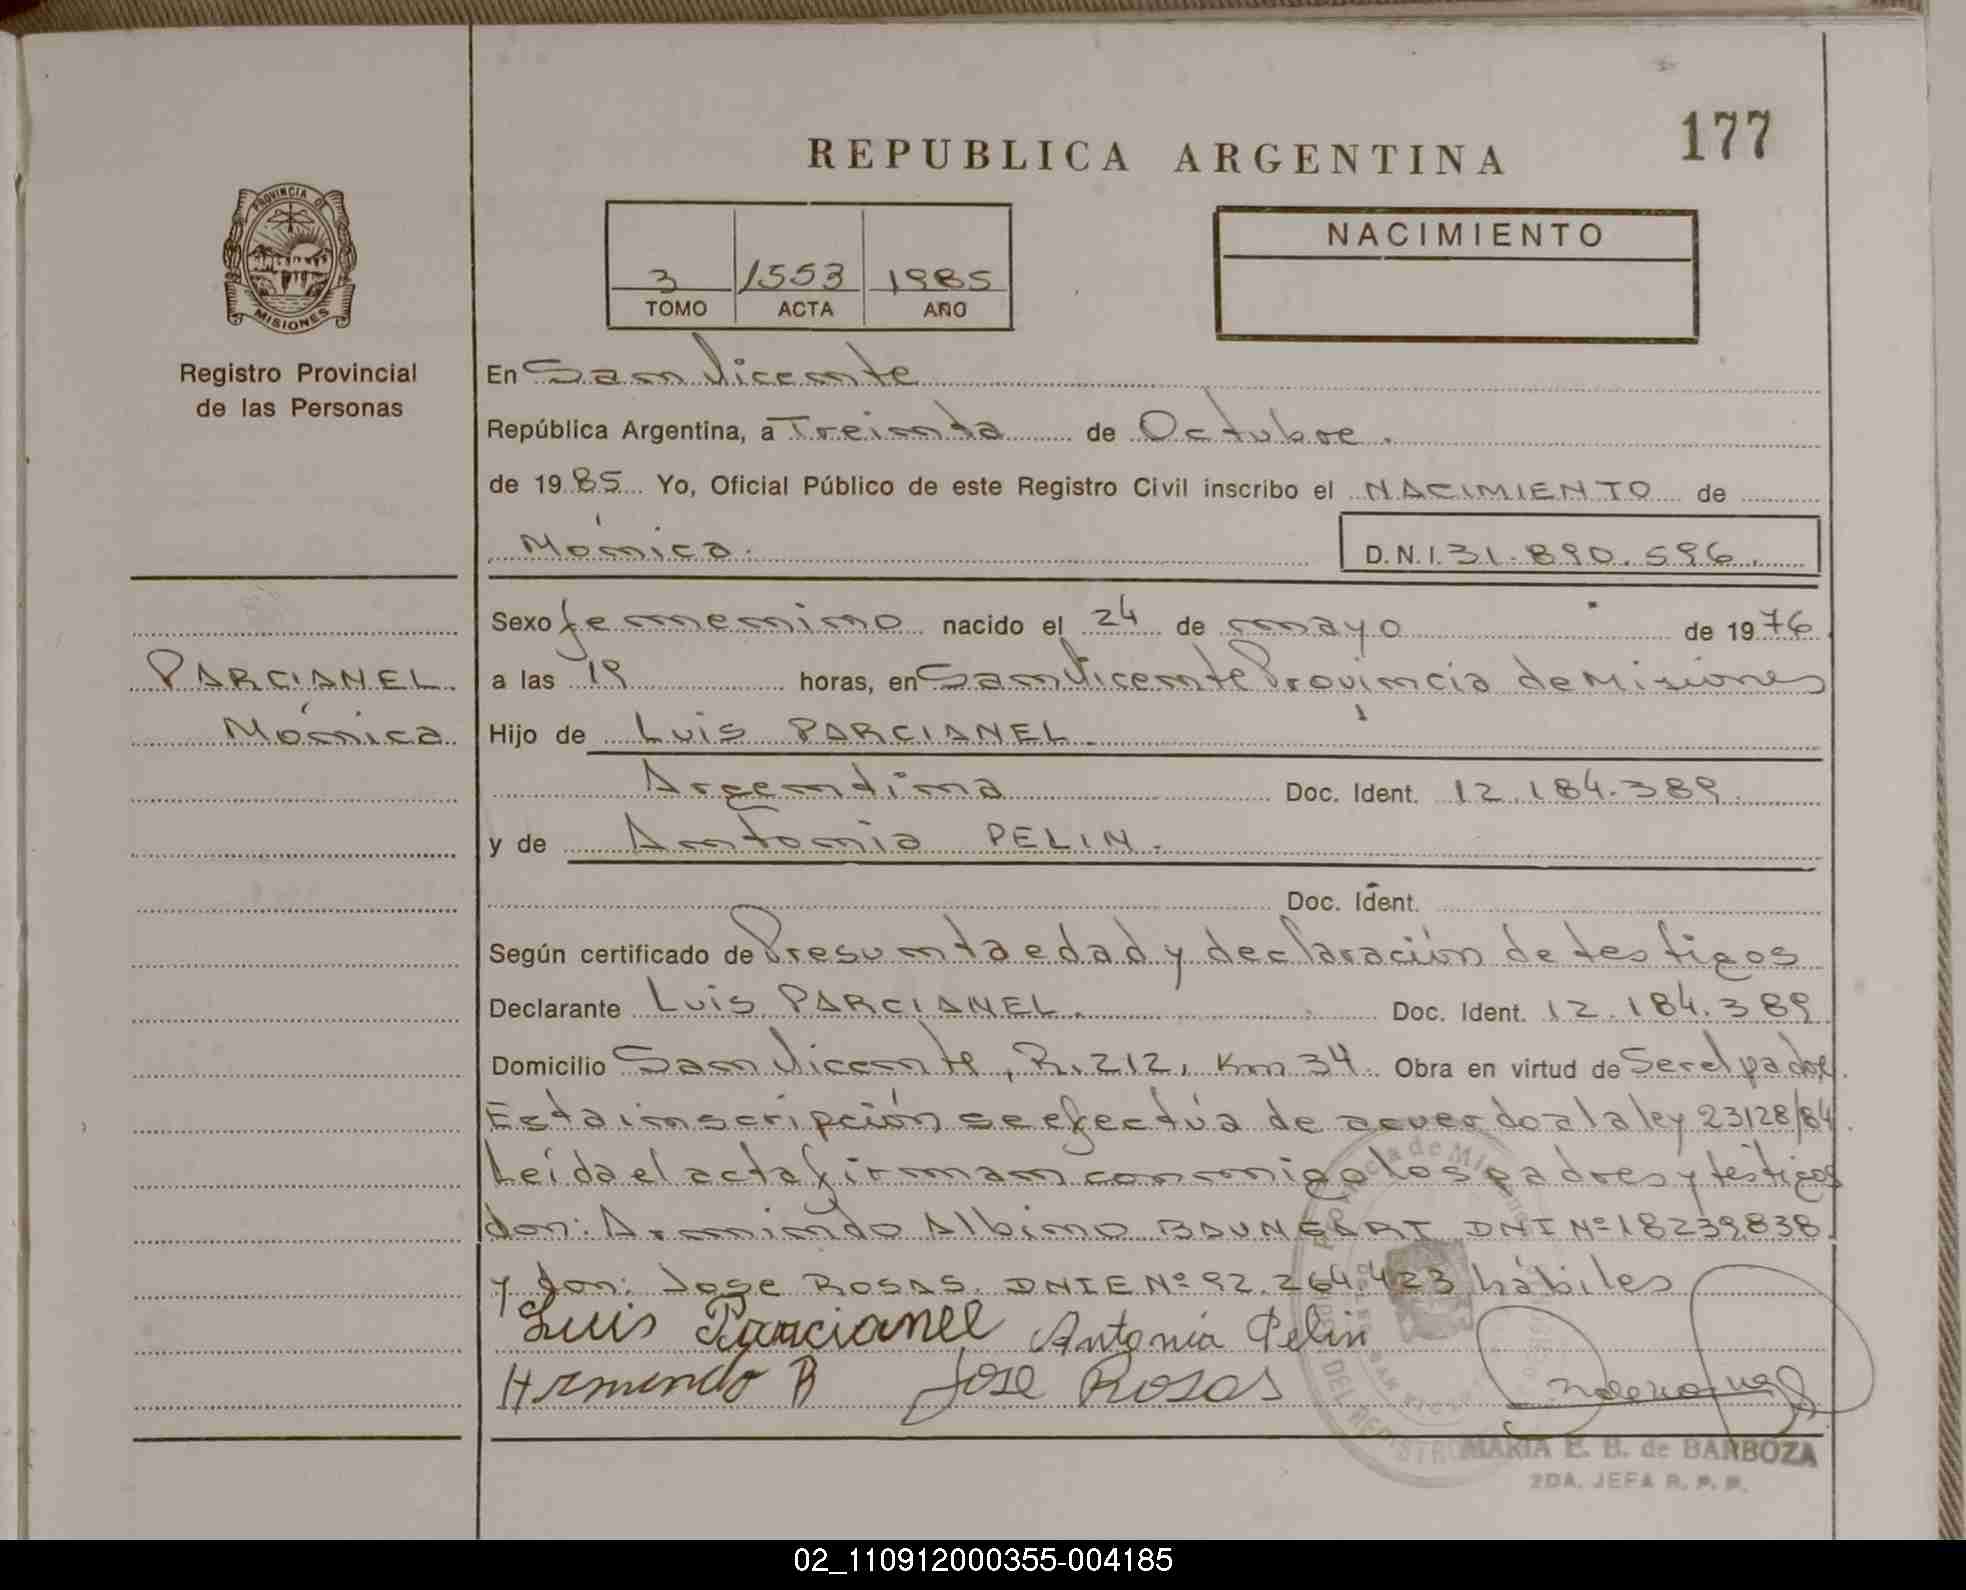 177
REPUBLICA ARGENTINA
PROVINCIA DE
MISIONES
Registro Provincial
de las Personas
3 1553 1985
TOMO ACTA AÑO
NACIMIENTO
En San Vicente
República Argentina, a Treinta de Octubre.
de 1985 Yo, Oficial Público de este Registro Civil inscribo el NACIMIENTO de
Mónica. D.N.I. 31.890.596.
PARCIANEL
Mónica
Sexo femenino nacido el 24 de mayo de 1976
a las 19 horas, en San Vicente Provincia de Misiones
Hijo de Luis PARCIANEL.
Argentina Doc. Ident. 12.184.389.
y de Antonia PELIN.
Doc. Ident.
Según certificado de Presunta edad y declaración de testigos
Declarante Luis PARCIANEL. Doc. Ident. 12.184.389
Domicilio San Vicente, R. 212, Km 34. Obra en virtud de Ser el padre.
Esta inscripción se efectúa de acuerdo a la ley 23128/84.
Leída el acta firman conmigo los padres y testigos
don: Armindo Albino BAUNGART DNI Nº 18239838
y don: Jose ROSAS. DNIE Nº 92.264.423 hábiles
Luis Parcianel Antonia Pelin
Armindo B Jose Rosas
MARIA E. B. de BARBOZA
2DA. JEFA R. P. P.
02_110912000355-004185